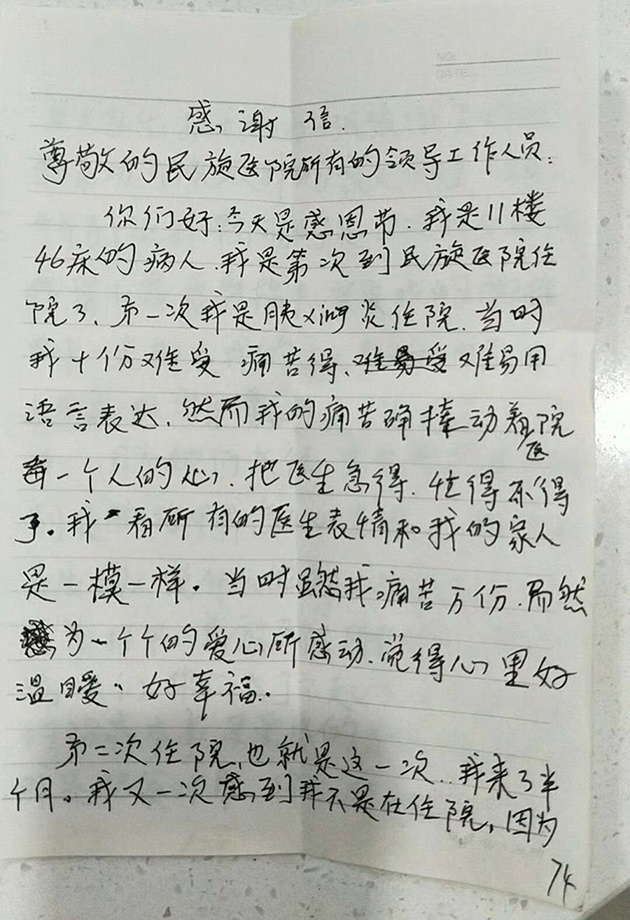 NO:
DATE:
感谢信.
尊敬的民族医院所有的领导工作人员:
你们好:今天是感恩节.我是11楼
46床的病人.我是第次到民族医院住
院了、第一次我是胰 炎住院.当时
我十份难受 痛苦得、难易用
语言表达.然而我的痛苦确撞动着医院
每一个人的心.把医生急得.忙得不得
了。我看所有的医生表情和我的家人
是一模一样。当时虽然我痛苦万份.而然
为一个个的爱心所感动.觉得心里好
温暖、好幸福.
第二次住院,也就是这一次..我来了半
个月。我又一次感到我不是在住院,因为
74